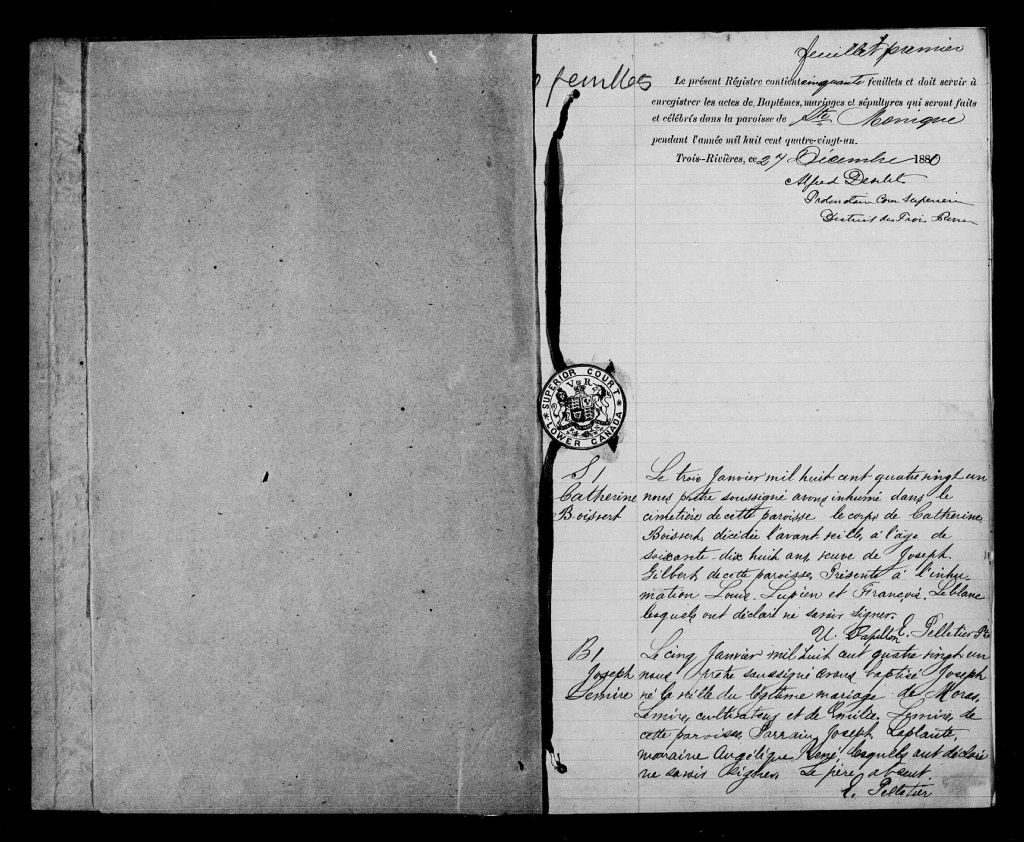 feuillet premier
feuilles
Le présent Régistre contient cinquante feuillets et doit servir à
enregistrer les actes de Baptêmes, mariages et sépultures qui seront faits
et célébrés dans la paroisse de Ste Monique
pendant l'année mil huit cent quatre-vingt-un.
Trois-Rivières, ce 27 Décembre 1880
Alfred Desilets
Protonotaire Cour Superieure
District des Trois
SUPERIOR COURT
V R
LOWER CANADA
S 1
Catherine
Boisvert
Le trois Janvier mil huit cent quatre vingt un
nous prêtre soussigné avons inhumé dans le
cimetière de cette paroisse le corps de Catherine
Boisvert, décédée l'avant veille, à l'âge de
soixante-dix huit ans, veuve de Joseph
Gilbert de cette paroisse, Présents à l'inhu-
mation Louis Lupien et François Leblanc
lesquels ont déclaré ne savoir signer.
U. Papillon E. Pelletier Ptre
B 1
Joseph
Lemire
Le cinq Janvier mil huit cent quatre vingt un
nous prêtre soussigné avons baptisé Joseph
né la veille du légitime mariage de Moras
Lemire, cultivateur et de Emilie Lemire, de
cette paroisse, Parrain Joseph Laplante,
marraine Angélique René, lesquels ont déclaré
ne savoir signer, Le père absent.
E. Pelletier